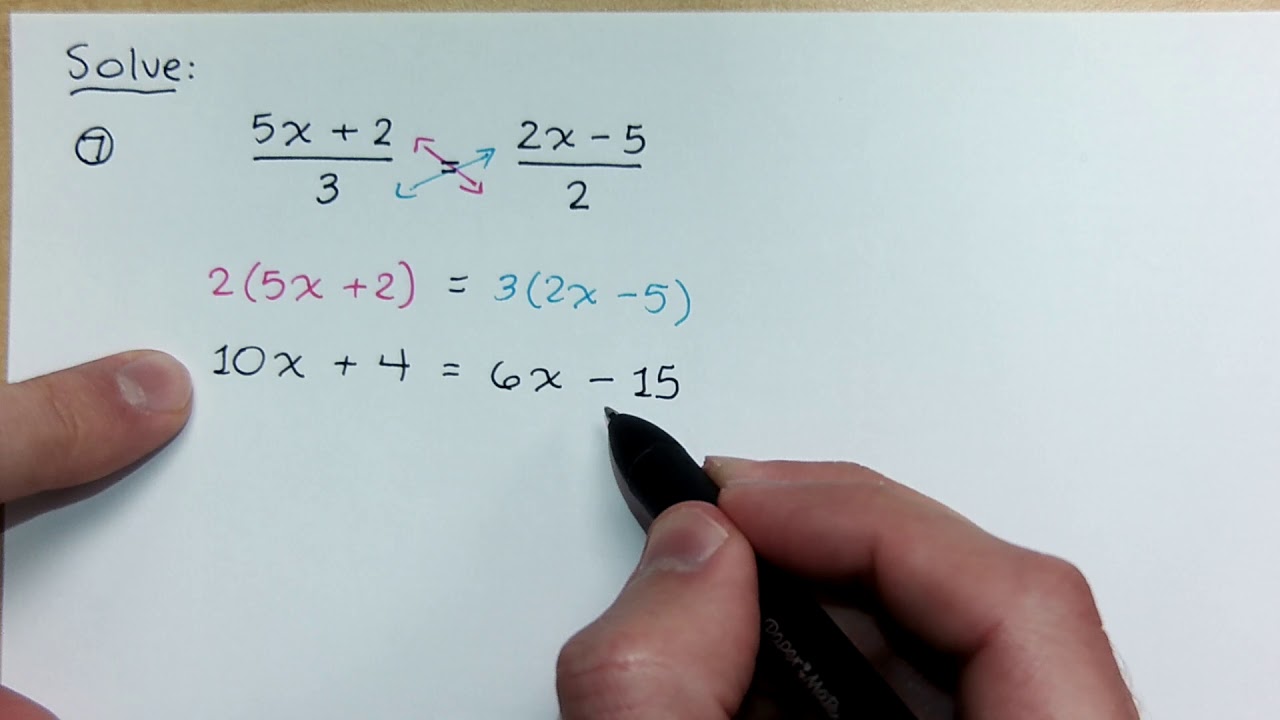 Solve:
⑦
5x + 2 / 3 = 2x - 5 / 2
2(5x + 2) = 3(2x - 5)
10x + 4 = 6x - 15
Paper:Mate